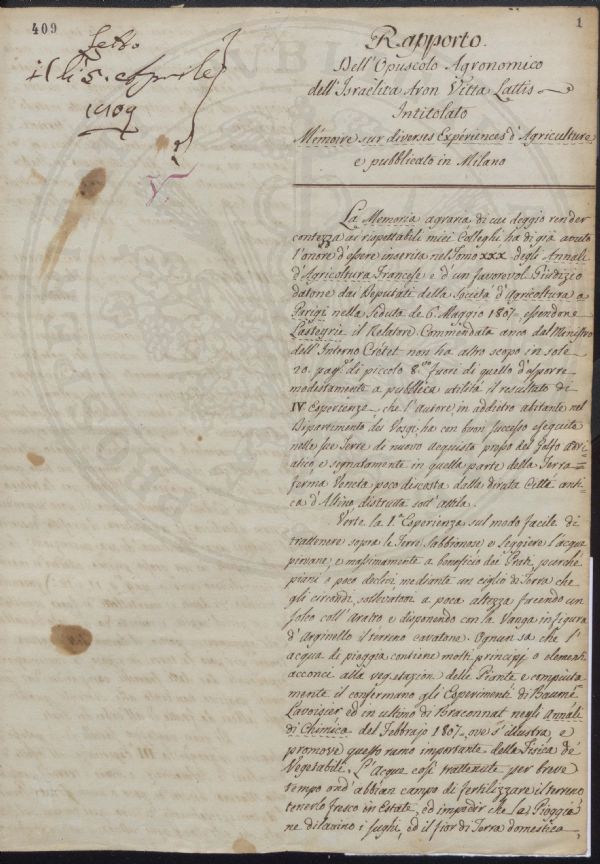 409
1
Letto
il dì 5. Aprile
1809
V.
Rapporto.
Dell'Opuscolo Agronomico
dell'Israelita Aron Vitta Lattis
Intitolato
Mémoire sur diverses Expériences d'Agriculture
e pubblicato in Milano
La Memoria agraria di cui deggio render
contezza ai rispettabili miei Colleghi ha di già avuto
l'onore d'essere inserita nel Tomo XXX degli Annali
d'Agricoltura Francese e d'un favorevol Giudizio
datone dai Deputati della Società d'Agricoltura a
Parigi nella Seduta de 6. Maggio 1807 essendone
Lasteyrie il Relatore. Commendata anco dal Ministro
dell'Interno Crétet non ha altro scopo in sole
20. pag. di piccolo 8.vo fuori di quello d'esporre
modestamente a pubblica utilità il resultato di
IV. Esperienze che l'autore, in addietro abitante nel
Dipartimento dei Vosgi, ha con buon successo eseguite
nelle sue Terre di nuovo acquisto presso del Golfo adri-
atico, e segnatamente in quella parte della Terra-
ferma Veneta poco discosta dalla diruta Città anti-
ca d'Altino distrutta sott'Attila.
Verte la 1.a Esperienza sul modo facile di
trattenere sopra le Terre sabbionose e leggiere l'acque
piovane, e massimamente a beneficio dei Prati, purchè
piani o poco declivi mediante un ciglio di Terra che
gli circondi, sollevatovi a poca altezza facendo un
solco coll'Aratro e disponendo con la Vanga in figura
d'Arginello il terreno cavatone. Ognun sa che l'
acqua di pioggia contiene molti principj o elementi
acconci alla vegetazion delle Piante e compiuta
mente il confermano gli Esperimenti di Baumé
Lavoisier, ed in ultimo di Braconnat negli Annali
di Chimica del Febbrajo 1807. ove s'illustra, e
promove questo ramo importante della Fisica de'
Vegetabili. L'acque così trattenute per breve
tempo ond'abbian campo di fertilizzare il terreno
tenerlo fresco in Estate, ed impedir che le Pioggia
ne dilavino i sughi, ed il fior di Terra domestica,